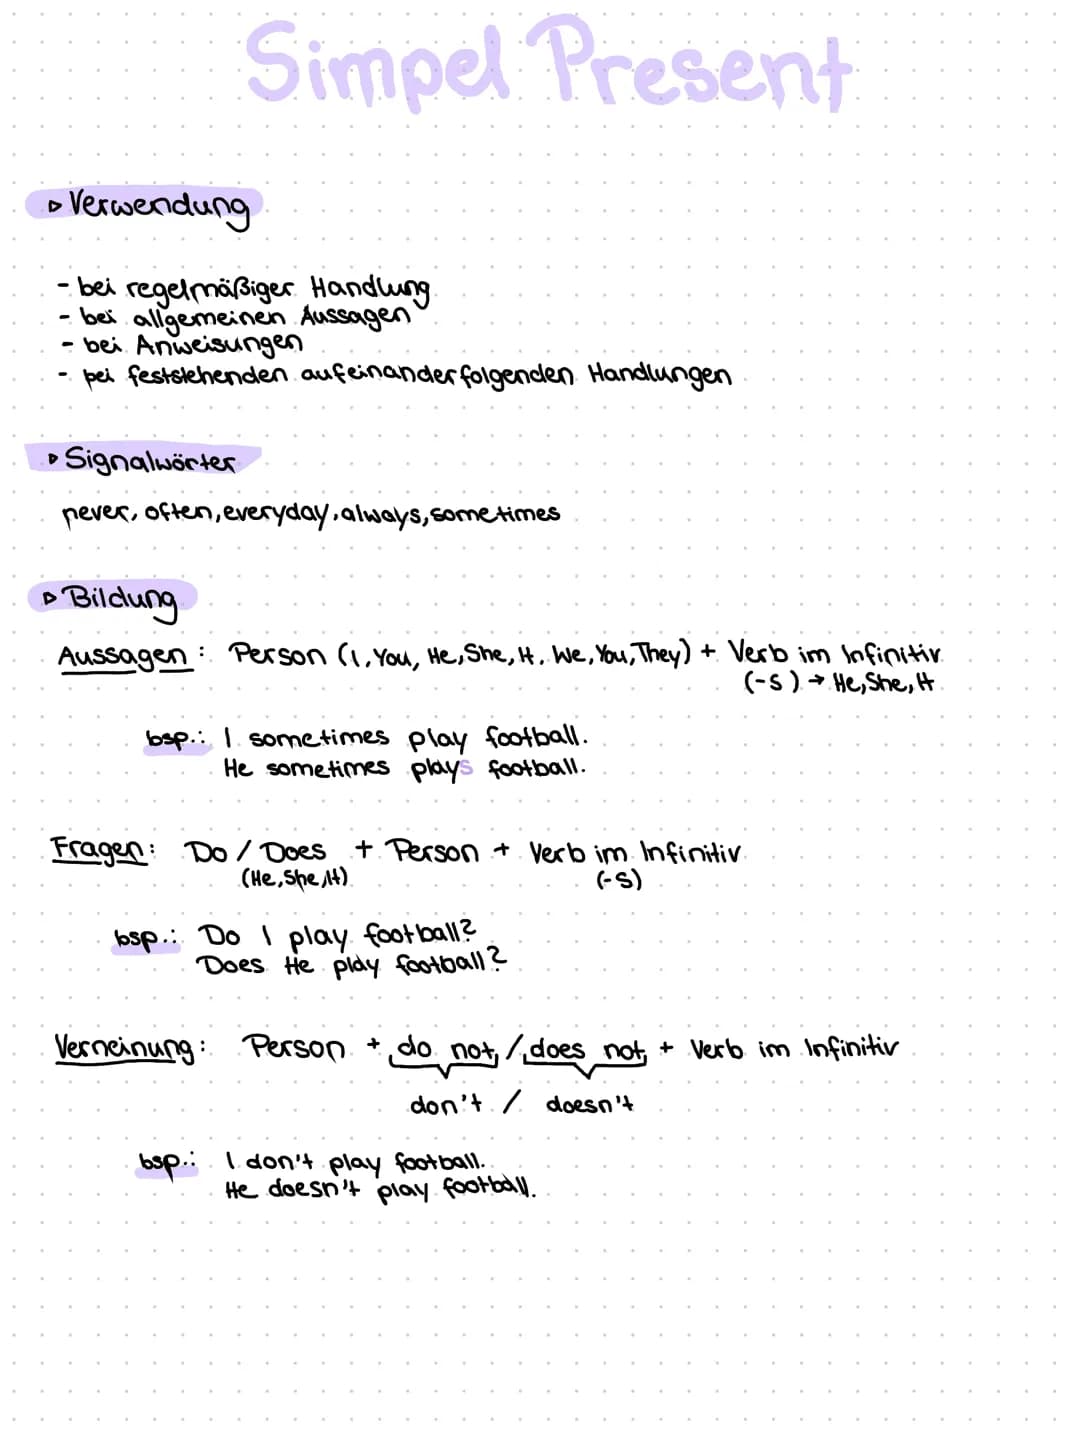 Simpel Present
▹ Verwendung
- bei regelmäßiger Handlung
- bei allgemeinen Aussagen
- bei Anweisungen
- bei feststehenden aufeinanderfolgenden Handlungen
▹ Signalwörter
never, often, everyday, always, sometimes
▹ Bildung
Aussagen: Person (I, You, He, She, It, We, You, They) + Verb im Infinitiv
(-s) → He, She, It
bsp.: I sometimes play football.
He sometimes plays football.
Fragen: Do / Does + Person + Verb im Infinitiv
(He, She, It) (-s)
bsp.: Do I play football?
Does He play football?
Verneinung: Person + do not / does not + Verb im Infinitiv
don't / doesn't
bsp.: I don't play football.
He doesn't play football.